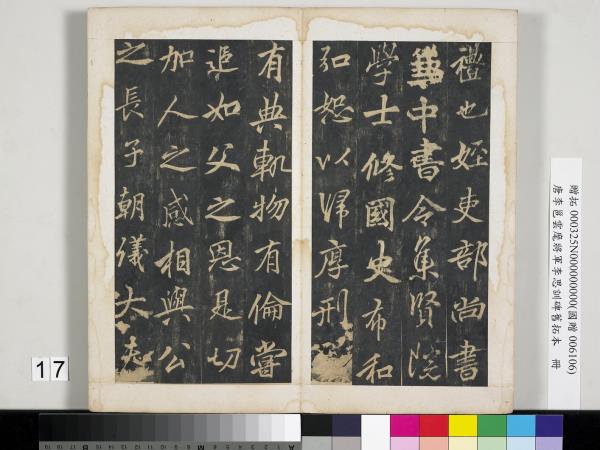 禮也姪吏部尚書
兼中書令集賢院
學士修國史布和
弘恕以歸厚刑
有典軌物有倫嘗
追如父之恩是切
加人之感相與公
之長子朝儀大夫
贈拓 000325N000000000(國贈 006106)
唐李邕雲麾將軍李思訓碑舊拓本 冊
17